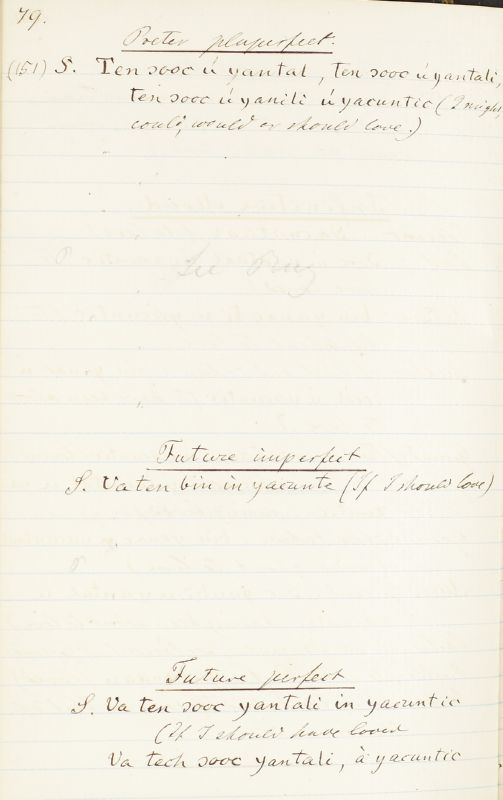 79.
Preter pluperfect.
(151) S. Ten sooc ú yantal, ten sooc ú yantali,
ten sooc ú yanili ú yacuntic (I might,
could, would or should love.)
See Ruz
Future imperfect
S. Va ten bin in yacunte (If I should love)
Future perfect
S. Va ten sooc yantali in yacuntic
(If I should have loved
Va tech sooc yantali, à yacuntic